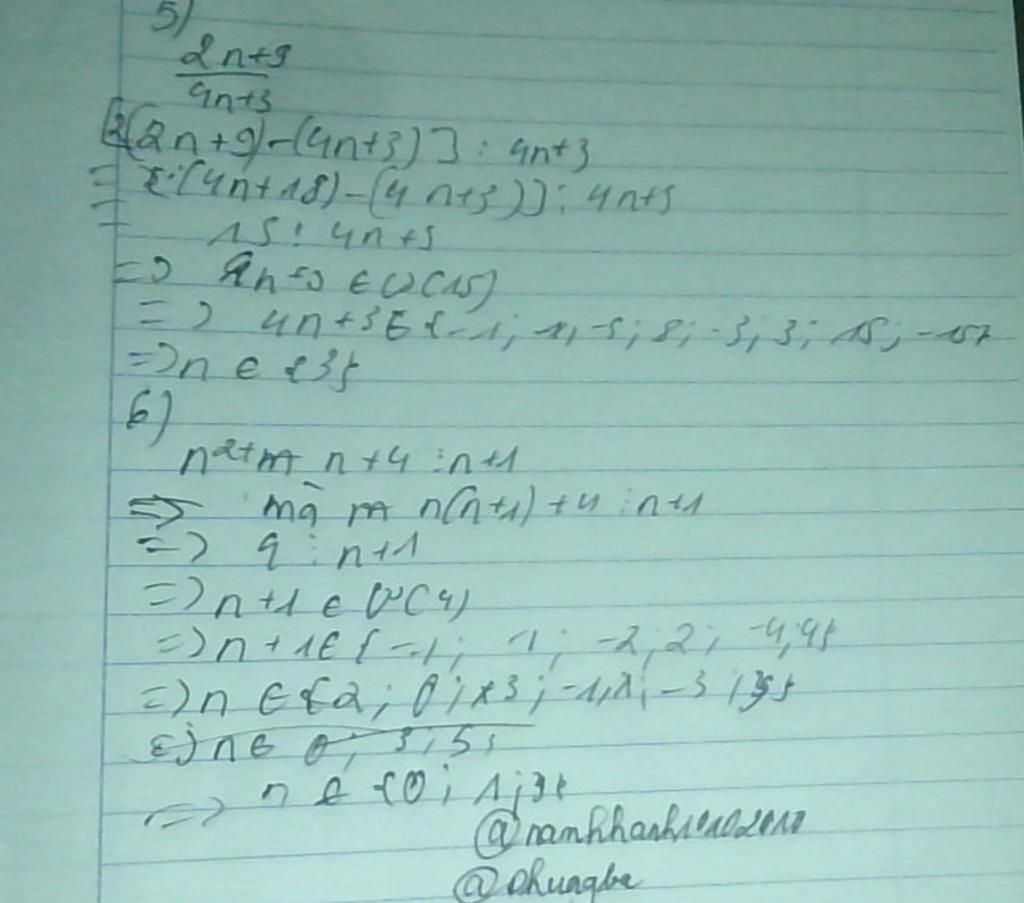 5)
2n+9
4n+3
[2(2n+9)-(4n+3)] : 4n+3
= [(4n+18)-(4n+3)] : 4n+3
= 15 : 4n+3
=> 4n+3 ∈ Ư(15)
=> 4n+3 ∈ {-1; 1; -5; 5; -3; 3; 15; -15}
=> n ∈ {3}
6)
n²+ n+4 ⋮ n+1
=> mà n(n+1)+4 ⋮ n+1
=> 4 ⋮ n+1
=> n+1 ∈ Ư(4)
=> n+1 ∈ {-1; 1; -2; 2; -4; 4}
=> n ∈ {2; 0; 3; -1; 1; -3; 3}
n ∈ 0; 3; 5;
=> n ∈ {0; 1; 3}
@namkhanh10102010
@Phungbe